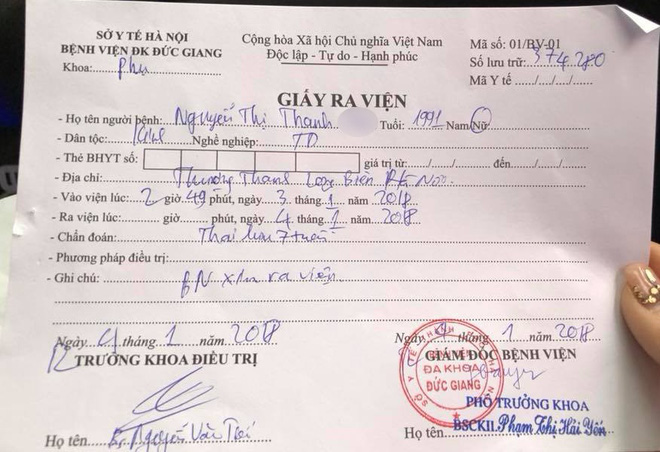 SỞ Y TẾ HÀ NỘI
BỆNH VIỆN ĐK ĐỨC GIANG
Khoa: Phụ
Cộng hòa Xã hội Chủ nghĩa Việt Nam
Độc lập - Tự do - Hạnh phúc
Mã số: 01/BV-01
Số lưu trữ: 374.280
Mã Y tế ..../..../..../....
GIẤY RA VIỆN
- Họ tên người bệnh: Nguyễn Thị Thanh Tuổi: 1991 Nam/Nữ
- Dân tộc: Kinh Nghề nghiệp: TD
- Thẻ BHYT số: giá trị từ:..../..../.... đến..../..../....
- Địa chỉ: Thượng Thanh Long Biên
- Vào viện lúc: 2 giờ 49 phút, ngày 3 tháng 1 năm 2018
- Ra viện lúc: giờ phút, ngày 4 tháng 1 năm 2018
- Chẩn đoán: Thai lưu 7 tuần
- Phương pháp điều trị:
- Ghi chú: BN xin ra viện
Ngày 4 tháng 1 năm 2018
TRƯỞNG KHOA ĐIỀU TRỊ
Họ tên Bs. Nguyễn Văn
Ngày 4 tháng 1 năm 2018
GIÁM ĐỐC BỆNH VIỆN
ĐA KHOA
ĐỨC GIANG
PHÓ TRƯỞNG KHOA
Họ tên BSCKII. Phạm Thị Hải Yến